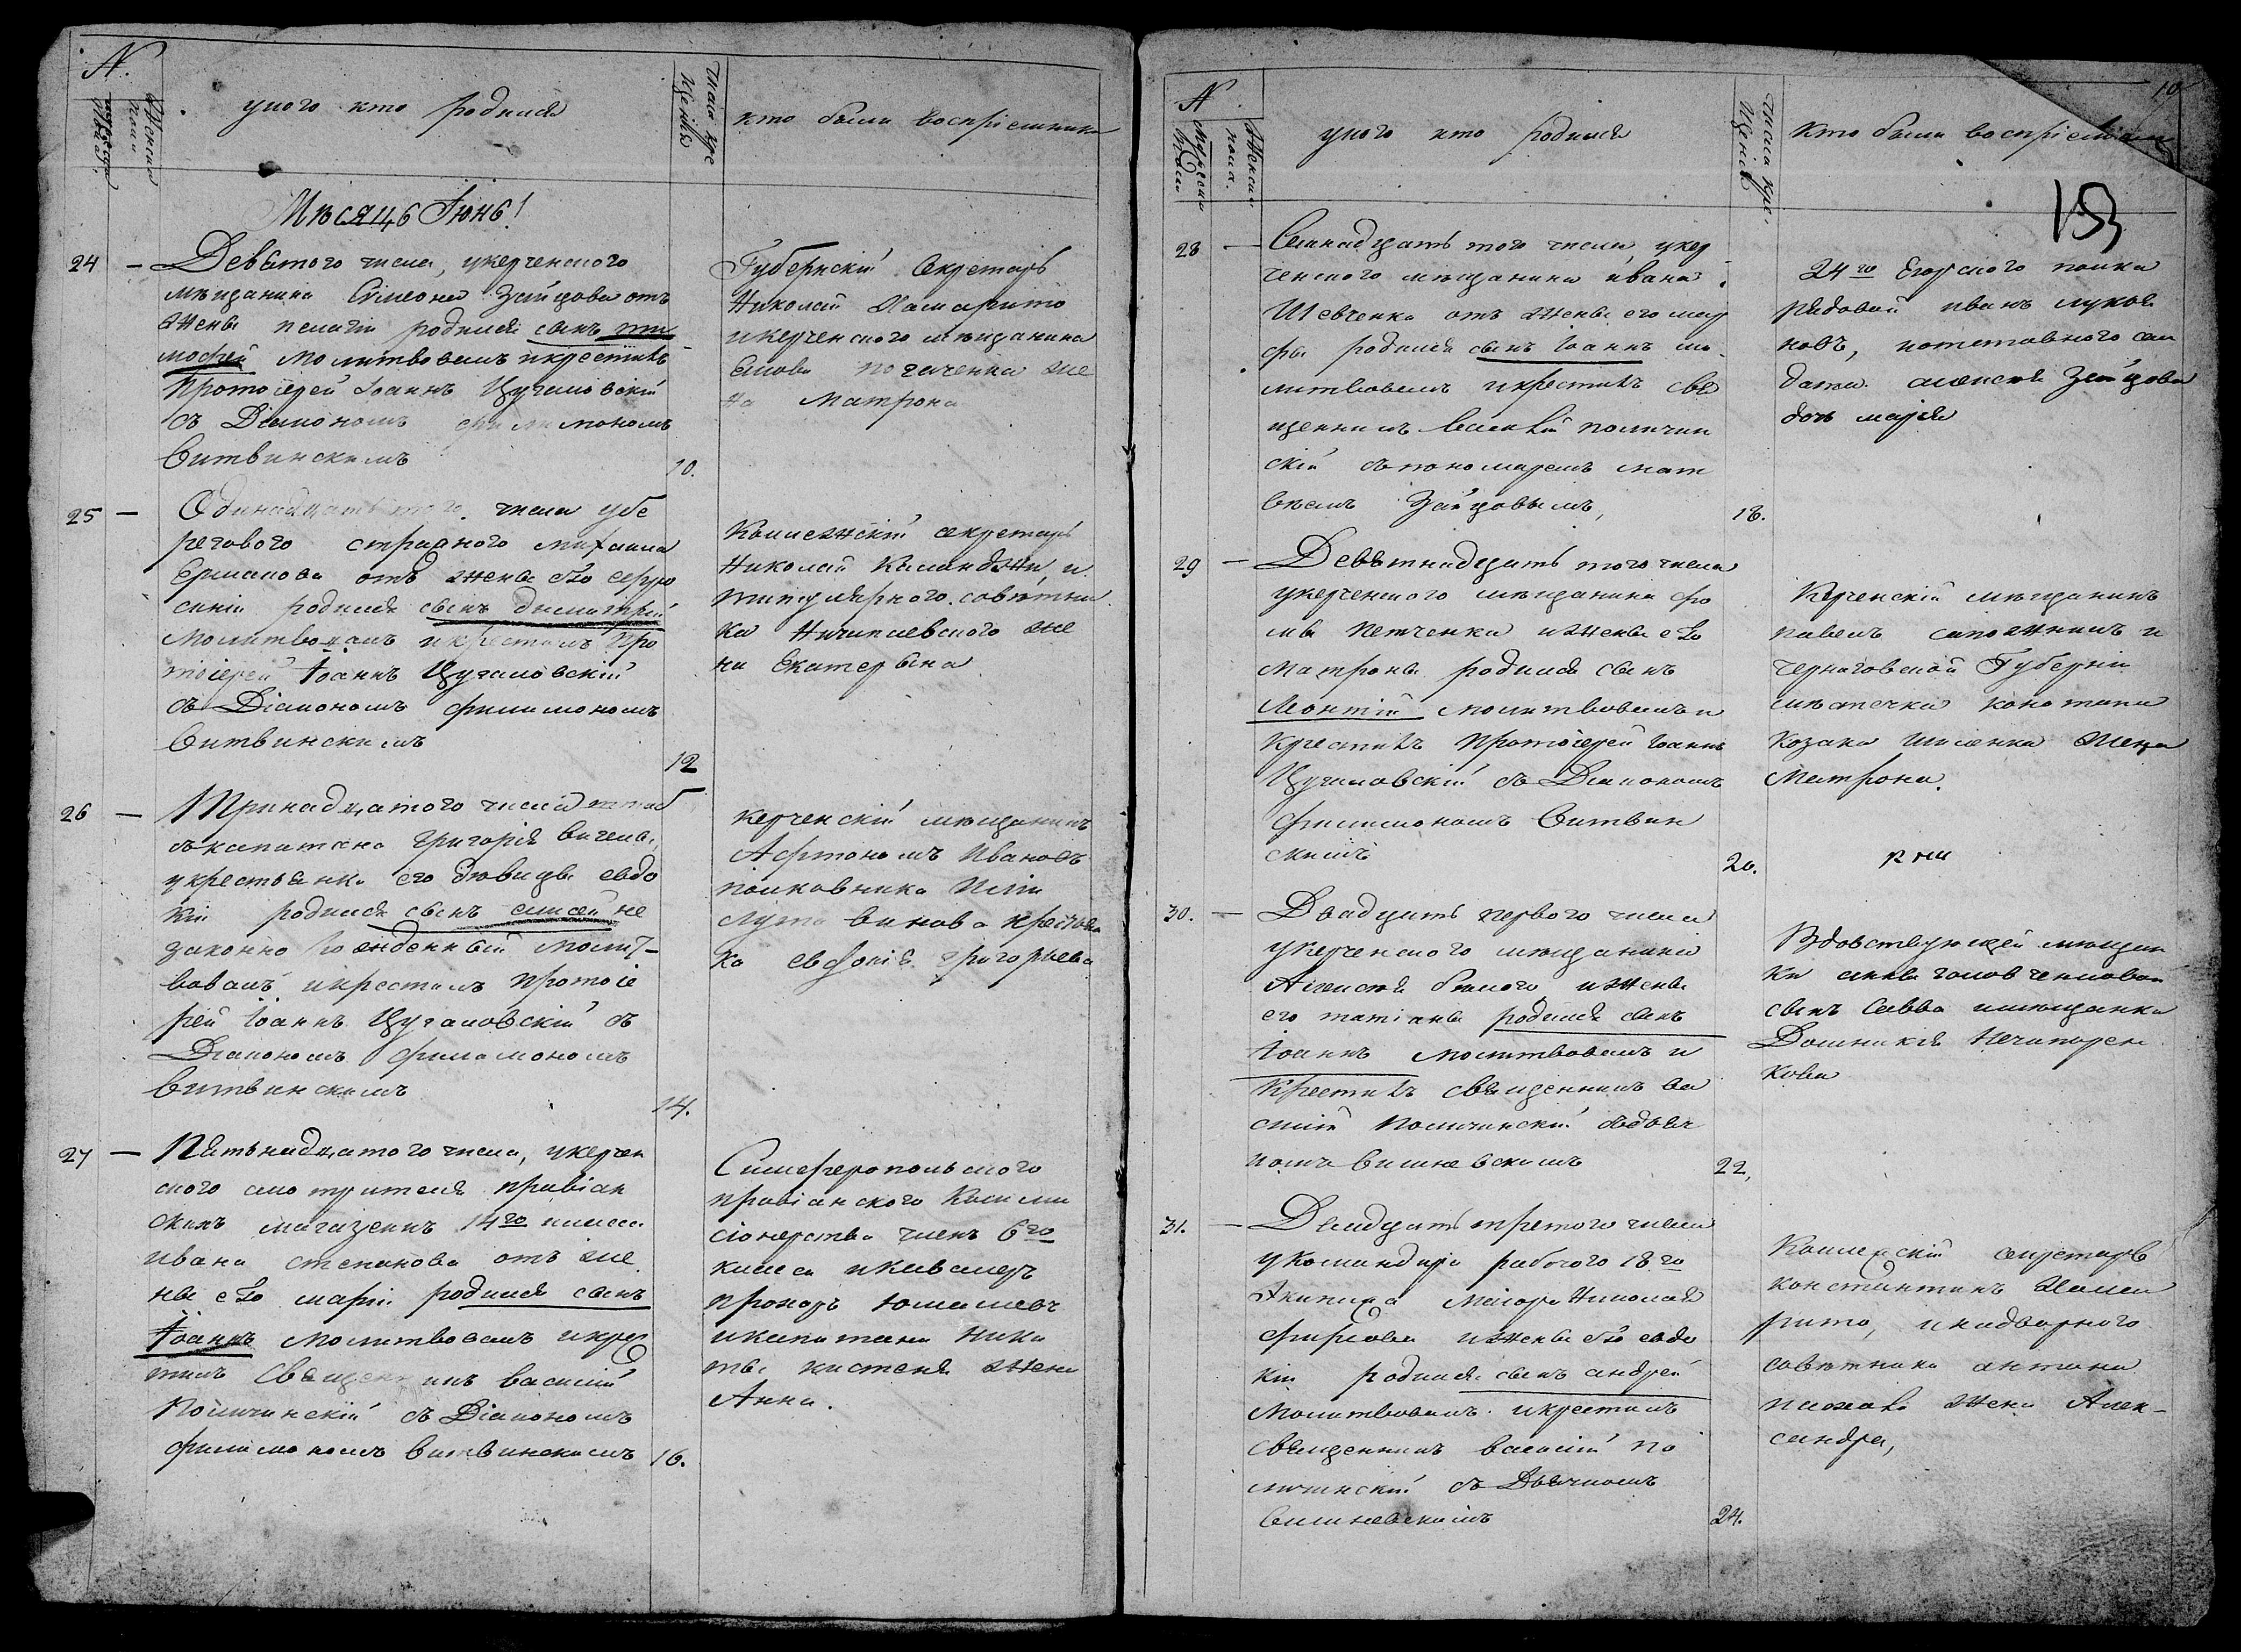 N.
Мужеска
пола
Женска
у кого кто родился
Числа кре
щенiя
кто были воспрiемники
Мѣсяцъ Iюнь!
24 — Девятого числа, укерченского
мѣщанина Симеона Зайцова отъ
жены пелагiи родился сынъ ти
мофей молитвовалъ икрестилъ
протоiерей Iоаннъ Цугаловскiй
съ Дiакономъ филимономъ
Витвинскимъ
10.
Губернскiй Секретарь
Николай
икерченского мѣщанина
же
на Матрона
25 — Одинадцатьтого числа убе
регового стражного михаила
Ермакова отъ жены его евфро
синiи родился сынъ димитрiй
молитвовалъ икрестилъ Про
тоiерей Iоаннъ Цугаловскiй
съ Дiакономъ филимономъ
Витвинскимъ
12
Колежскiй секретарь
Николай Каланджи, и
титулярного совѣтни
ка Ничипаевского же
на Екатерына
26 — Тринадцатого числа штаб
съкапитана Григорiя
укрестьянки его дѣвицы евдо
кiи родился сынъ елисей не
законно рожденный молит-
вовалъ икрестилъ протоiе
рей Iоаннъ Цугаловскiй съ
Дiакономъ филимономъ
Витвинскимъ
14.
керченскiй мѣщанинъ
Афтономъ Ивановъ
полковника
крестьян
ка евдокiя григорьева
27 — Пятьнадцатого числа, укерчен
ского смотрителя провiан
скихъ магазеинъ 14го класса
ивана степанова отъ же
ны его марiи родился сынъ
Iоаннъ молитвовалъ икрес
тилъ Священникъ василiй
Поличинскiй съ Дiакономъ
филимономъ витвинскимъ
16.
Симферопольского
провiанского Комми
сiонерства членъ 6го
класа икавалеръ
прохоръ
икапитана Ники
ты кистеня жена
Анна.
N
Мужеска
пола
Женска
пола.
у кого кто родился
Числа кре
щенiя
Кто были воспрiемники
10
153
28 — Семнадцать того числа укер
ченского мѣщанина ивана
Шевченка отъ жены его мар
фы родился сынъ Iоаннъ мо
литвовалъ икрестилъ свя
щенникъ Василiй поличин
скiй съпономаремъ мат
вѣемъ Зайцовымъ,
18.
24го Егорского полка
рядовой иванъ лукья
новъ, иотставного сол
дата алексея Зайцова
дочь марiя
29 — Девятнадцать того числа
укерченского мѣщанина фо
мы Петченка ижены его
матроны родился сынъ
Леонтiй молитвовалъ и
крестилъ протоiерей Iоаннъ
Цугаловскiй съ Дiакономъ
филимономъ Витвин
скимъ
20.
Керченскiй мѣщанинъ
павелъ сапожникъ и
черниговской Губернiи
мѣстечка конотопа
козака жена
Матрона.
30. — Двадцать первого числа
укерченского мѣщанина
Алексея бѣлого ижены
его татiаны родился сынъ
Iоаннъ молитвовалъ и
крестилъ священникъ ва
силiй поличинскiй съдьяч
комъ вишневскимъ
22,
Вдовствующей мѣщан
ки анны головченковой
сынъ Савва имѣщанка
Домникiя Нечипорен
кова
31. — Двадцать третого числа
укомандира рабочого 18го
Экипажа Маiора Николая
фирсова ижены его евдо
кiи родился сынъ андрей
молитвовалъ икрестилъ
священникъ василiй по
личинскiй съ Дьячкомъ
Вишневскимъ
24.
Колежскiй секретарь
константинъ
инадворного
совѣтника антона
жена Алек-
сандра,